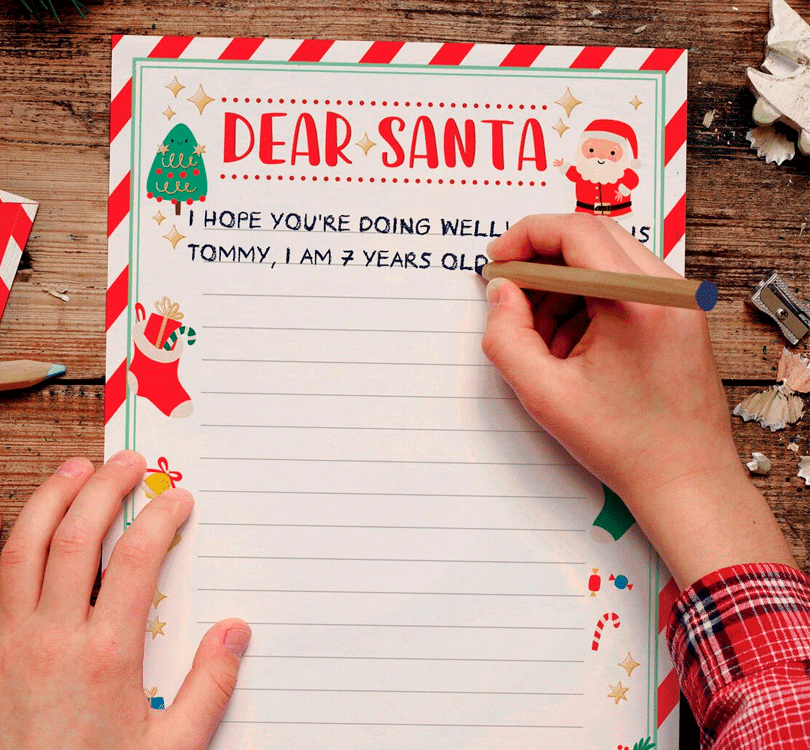 DEAR SANTA
I HOPE YOU'RE DOING WELL! IS
TOMMY, I AM 7 YEARS OLD